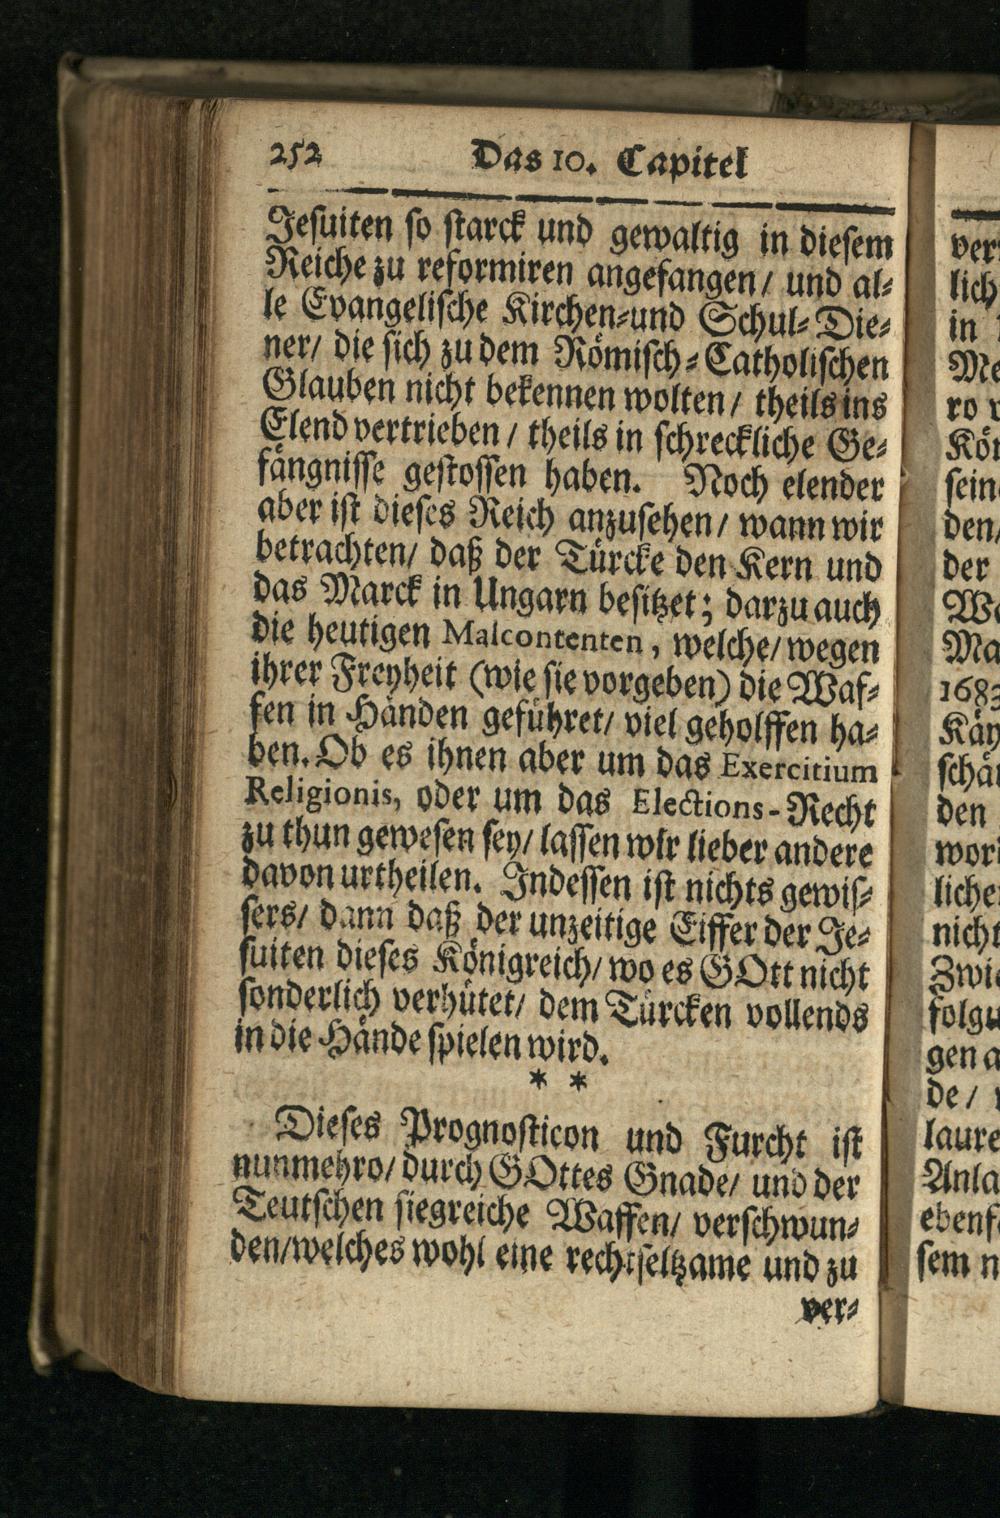 252 Das 10. Capitel
Jesuiten so starck und gewaltig in diesem
Reiche zu reformiren angefangen / und al⸗
le Evangelische Kirchen⸗und Schul⸗Die⸗
ner/ die sich zu dem Römisch⸗Catholischen
Glauben nicht bekennen wolten / theils ins
Elend vertrieben / theils in schreckliche Ge⸗
fängnisse gestossen haben. Noch elender
aber ist dieses Reich anzusehen / wann wir
betrachten/ daß der Türcke den Kern und
das Marck in Ungarn besitzet; darzu auch
die heutigen Malcontenten, welche/ wegen
ihrer Freyheit (wie sie vorgeben) die Waf⸗
fen in Händen geführet/ viel geholffen ha⸗
ben. Ob es ihnen aber um das Exercitium
Religionis, oder um das Elections-Recht
zu thun gewesen sey/ lassen wir lieber andere
davon urtheilen. Indessen ist nichts gewis⸗
sers/ dann daß der unzeitige Eiffer der Je⸗
suiten dieses Königreich/ wo es GOtt nicht
sonderlich verhütet/ dem Türcken vollends
in die Hände spielen wird.
* *
Dieses Prognosticon und Furcht ist
nunmehro/ durch GOttes Gnade/ und der
Teutschen siegreiche Waffen/ verschwun⸗
den/welches wohl eine recht seltzame und zu
ver⸗
ver
lich
in
Me
ro
Kön
sein
den/
der
Wa
Ma
1683
Käy
schä
den
wor
liche
nicht
Zwie
folgu
gen a
de /
laure
Anla
ebenf
sem n